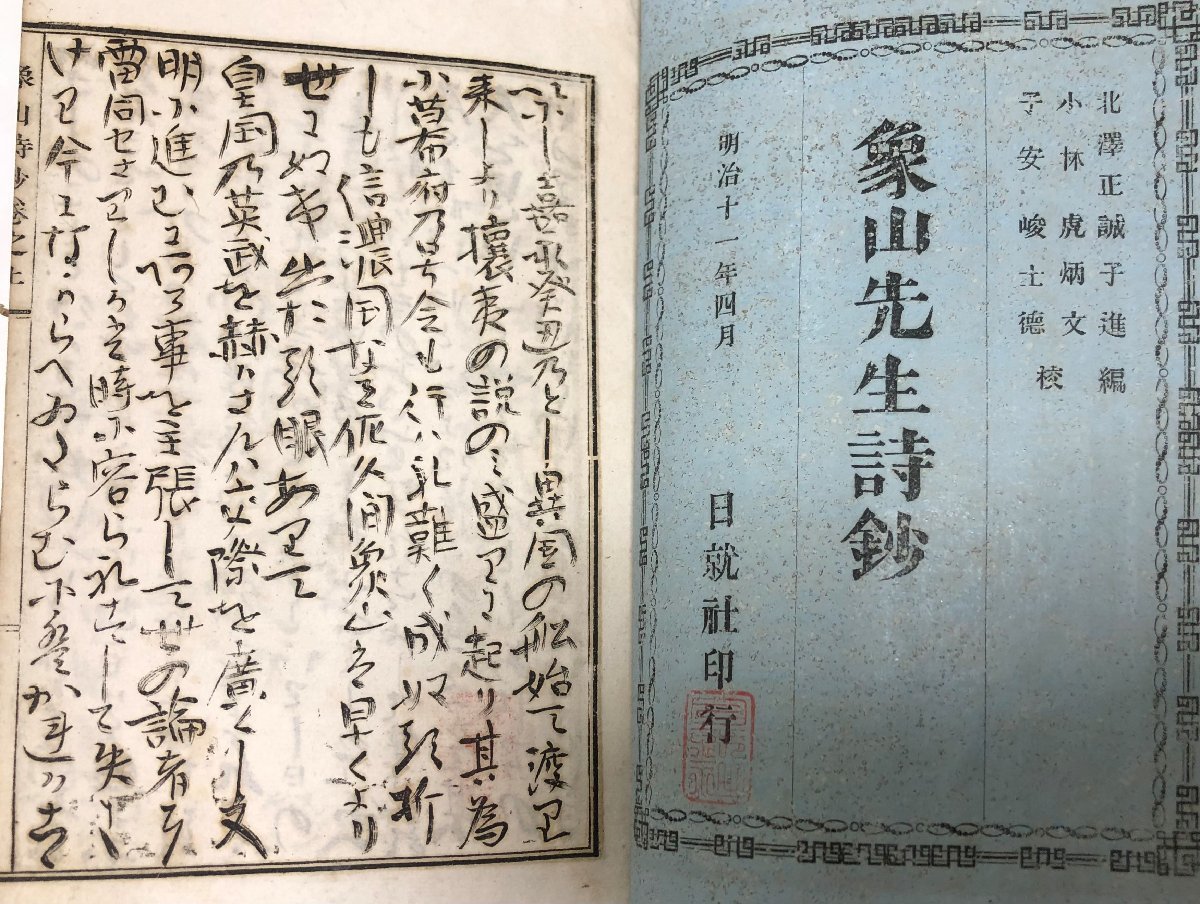 北澤正誠子進編
小林虎炳文
子安峻士德校
象山先生詩鈔
明治十一年四月
日就社印行
いにし嘉永癸丑乃とし異国の船始て渡り
来しより攘夷の説のミ盛りに起り其為
小幕府乃号令も行ハれ難く成ぬる折
しも信濃国なる佐久間象山は早くより
世にぬけ出たる眼ありて
皇国乃英武を赫かさんには交際を廣くし文
明に進むにある事を主張して世の論者に
雷同せさりしかは時に容られすして失しに
けり今になからへゐたらむに
象山詩鈔卷之上